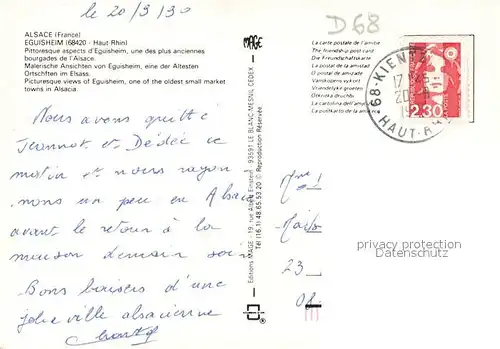 le 20/9/90
D68
ALSACE (France)
EGUISHEIM (68420 - Haut-Rhin)
Pittoresque aspects d'Eguisheim, une des plus anciennes
bourgades de l'Alsace.
Malerische Ansichten von Eguisheim, eine der Ältesten
Ortschften im Elsass.
Picturesque views of Eguisheim, one of the oldest small market
towns in Alsacia.
MAGE
La carte postale de l'amitié
The friendship post card
Die Freundschaftskarte
La postal de la amistad
O postal de amizade
Vanskapens vykort
Vriendelijke groeten
La cartolina dell'amicizia
68-KIENTZ
17H
20-9
HAUT-RH
2,30
Nous avons quitté
Jeannot et Dédée ce
matin et nous rayon
nons un peu en Alsace
avant le retour à la
maison demain soir.
Bons baisers d'une
jolie ville alsacienne
Editions MAGE - 19, rue Albert Einstein - 93591 LE BLANC-MESNIL CEDEX
Tél (16.1) 48.65.53.20 © Reproduction Réservée
23
privacy protection
Datenschutz